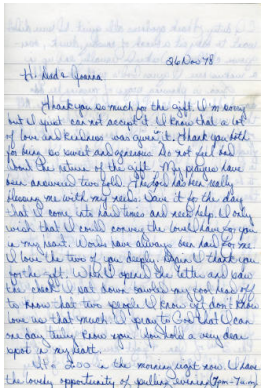 26 Nov 78
Hi Dad & Joanna
Thank you so much for the gift. I'm sorry
but I just can not accept it. I know that a lot
of love and kindness was given it. Thank you both
for being so sweet and generous. Do not feel bad
about the return of the gift. My pictures have
been answered two fold. The Lord has been really
blessing me with my needs. Save it for the day
that I come into hard times and need help. I only
wish that I could convey the love I have for you
in my heart. Words have always been hard for me
I love the two of you deeply. Again I thank you
for the gift. When I opened the letter and saw
the cash I sat down my head off
to know that two people I know yet don't know
love us that much. I pray to God that I can
one day truly know you. You hold a very dear
spot in my heart.
It's 200 in the morning right now. I have
the lovely opportunity of pulling (7pm-7am)